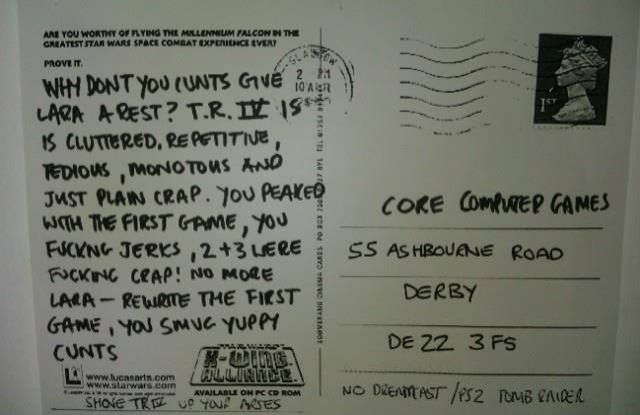 ARE YOU WORTHY OF FLYING THE MILLENNIUM FALCON IN THE
GREATEST STAR WARS SPACE COMBAT EXPERIENCE EVER?
PROVE IT.
WHY DONT YOU CUNTS GIVE
LARA A REST? T.R. IV IS
IS CLUTTERED, REPETITIVE,
TEDIOUS, MONOTOUS AND
JUST PLAIN CRAP. YOU PEAKED
WITH THE FIRST GAME, YOU
FUCKNG JERKS, 2+3 WERE
FUCKING CRAP! NO MORE
LARA - REWRITE THE FIRST
GAME, YOU SMUG YUPPY
CUNTS
www.lucasarts.com
www.starwars.com
X-WING
ALLIANCE
AVAILABLE ON PC CD ROM
SHOVE TRIV UP YOUR ARSES
GLASGOW
2 PM
10 APR
BOOMERANG CINEMA CARDS PO BOX
1ST
CORE COMPUTER GAMES
55 ASHBOURNE ROAD
DERBY
DE22 3FS
NO DREAMCAST/PS2 TOMB RAIDER